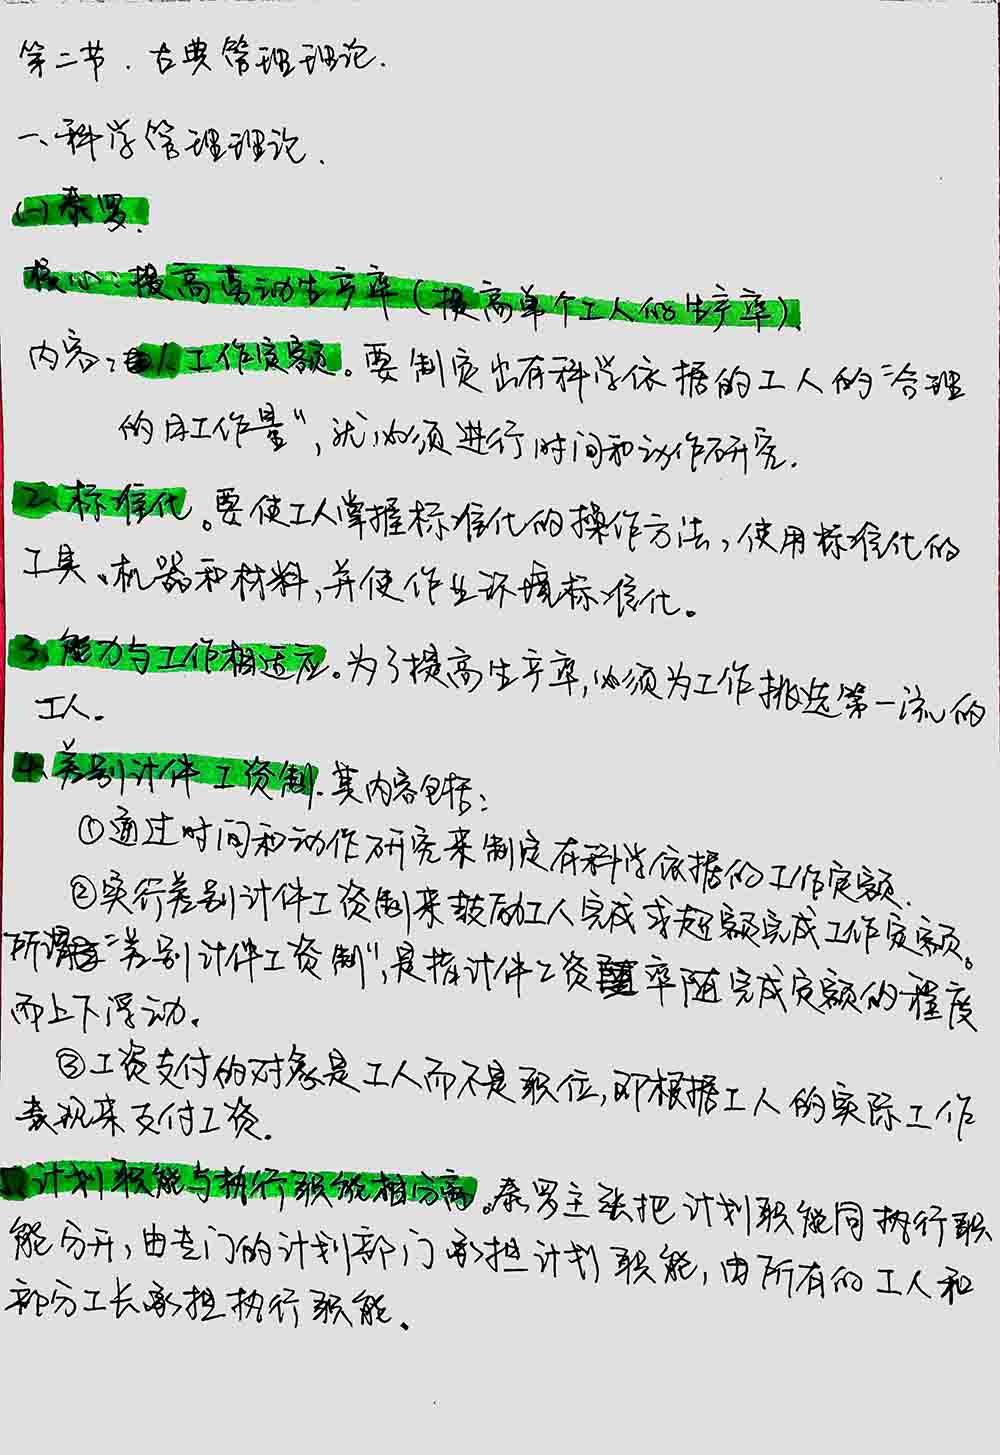 第二节．古典管理理论．
一、科学管理理论．
(一)泰罗．
核心：提高劳动生产率（提高单个工人的生产率）．
内容：1.工作定额。要制定出有科学依据的工人的“合理
的日工作量”，就必须进行时间和动作研究．
2、标准化。要使工人掌握标准化的操作方法，使用标准化的
工具、机器和材料，并使作业环境标准化。
3、能力与工作相适应。为了提高生产率，必须为工作挑选第一流的
工人．
4、差别计件工资制．其内容包括：
①通过时间和动作研究来制定有科学依据的工作定额．
②实行差别计件工资制来鼓励工人完成或超额完成工作定额。
所谓“差别计件工资制”，是指计件工资率随完成定额的程度
而上下浮动．
③工资支付的对象是工人而不是职位，即根据工人的实际工作
表现来支付工资．
5、计划职能与执行职能相分离。泰罗主张把计划职能同执行职
能分开，由专门的计划部门承担计划职能，由所有的工人和
部分工长承担执行职能．